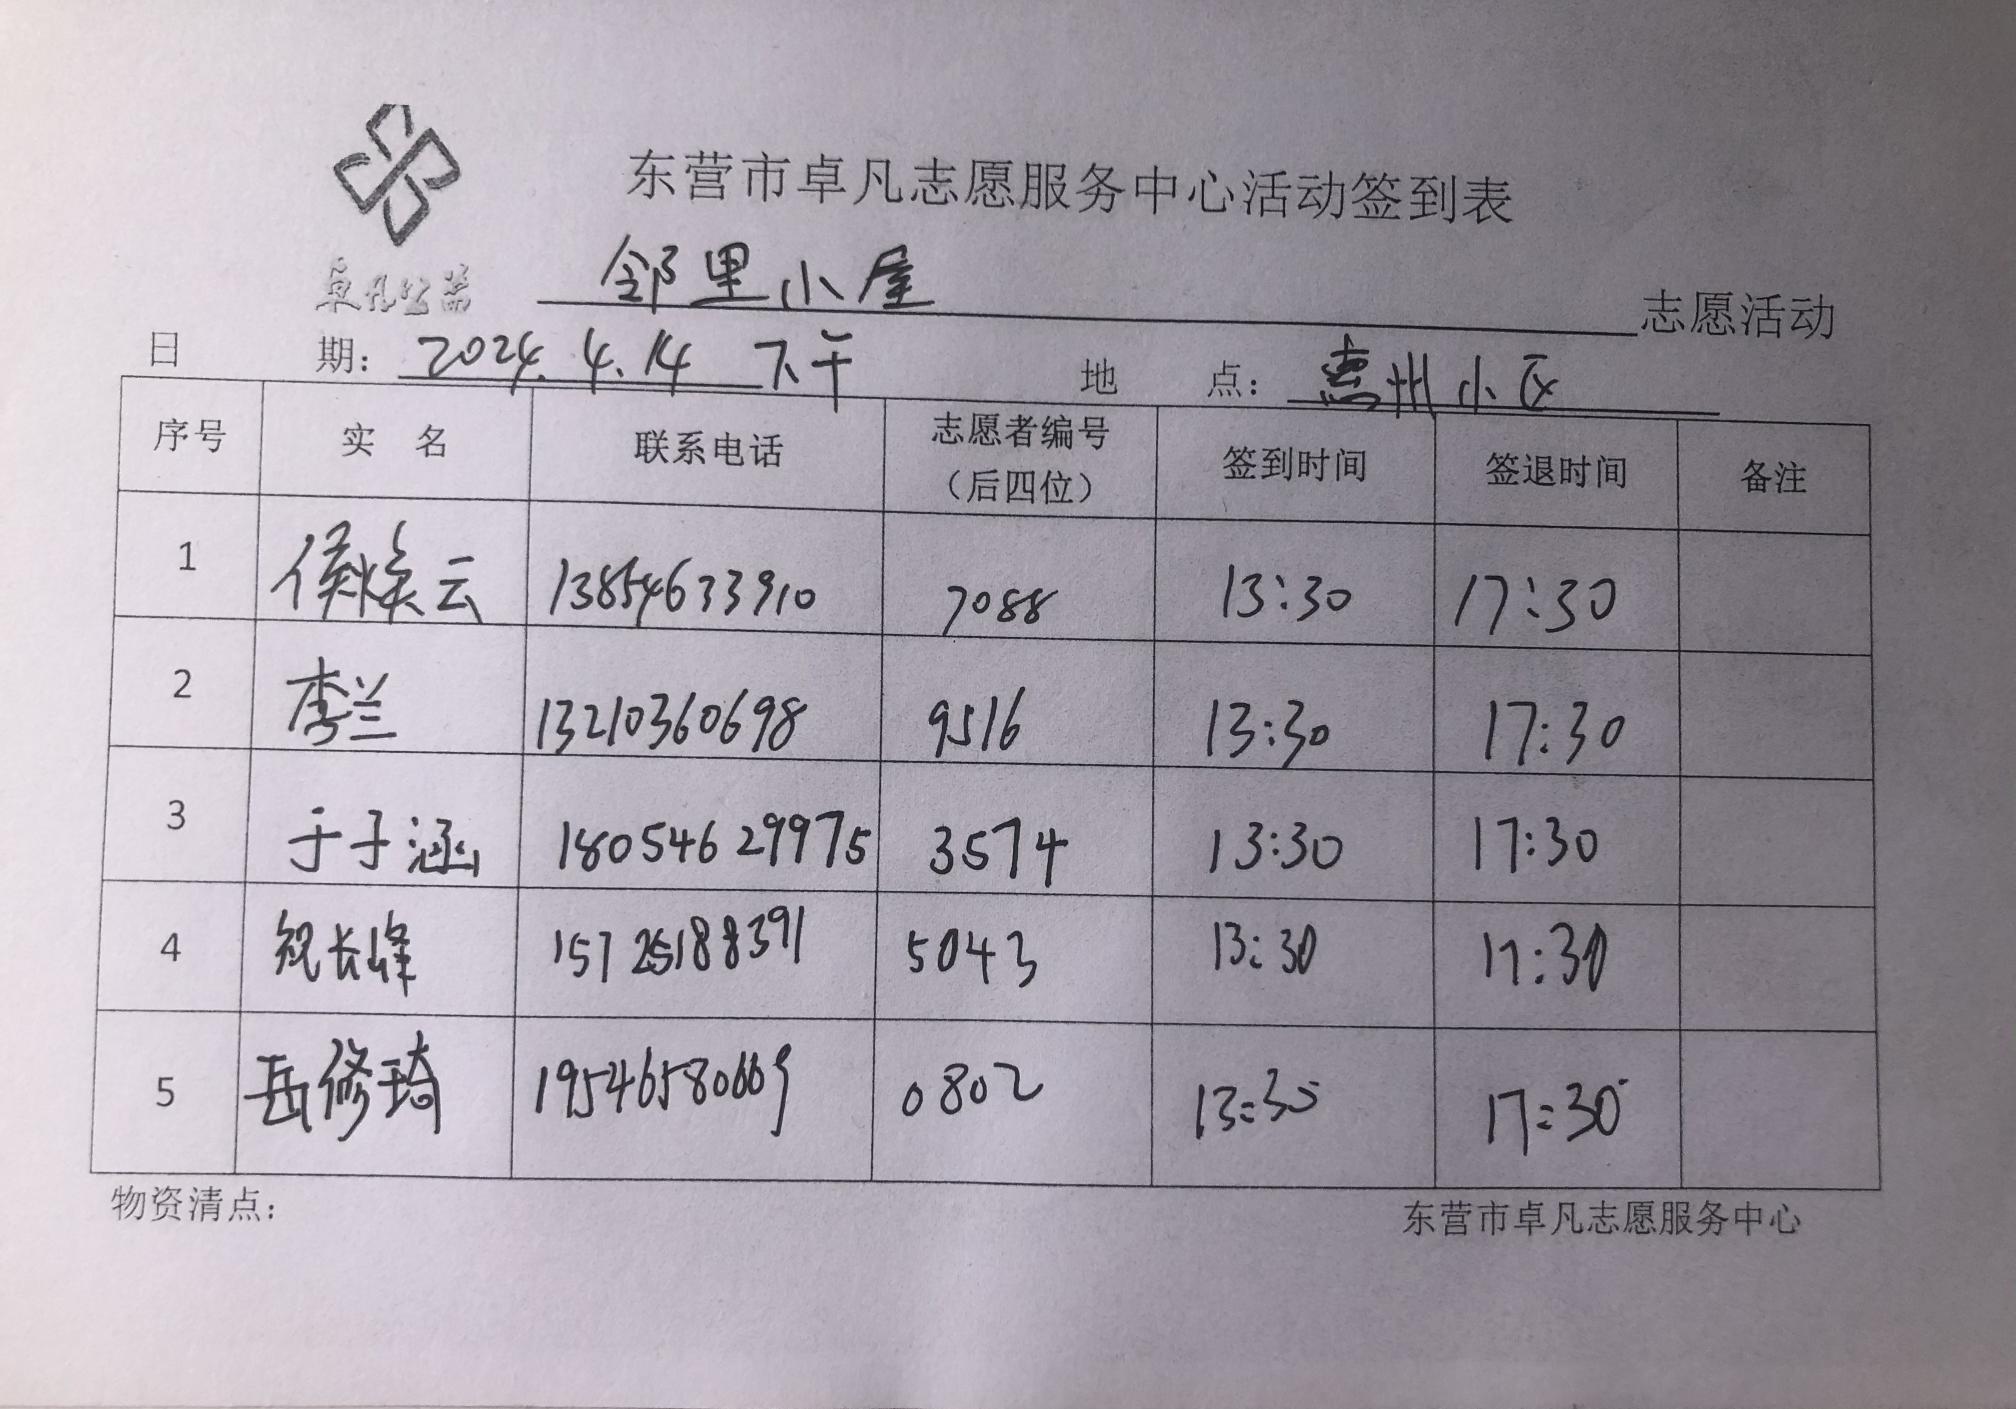 东营市卓凡志愿服务中心活动签到表
卓凡公益
邻里小屋 志愿活动
日 期：2024.4.14 下午 地 点：惠州小区
序号 实 名 联系电话 志愿者编号（后四位） 签到时间 签退时间 备注
1 侯焕云 13854633910 7088 13:30 17:30
2 李兰 13210360698 9516 13:30 17:30
3 于子涵 18054629975 3574 13:30 17:30
4 祝长峰 15725188391 5043 13:30 17:30
5 岳修琦 19546580669 0802 13:30 17:30
物资清点： 东营市卓凡志愿服务中心